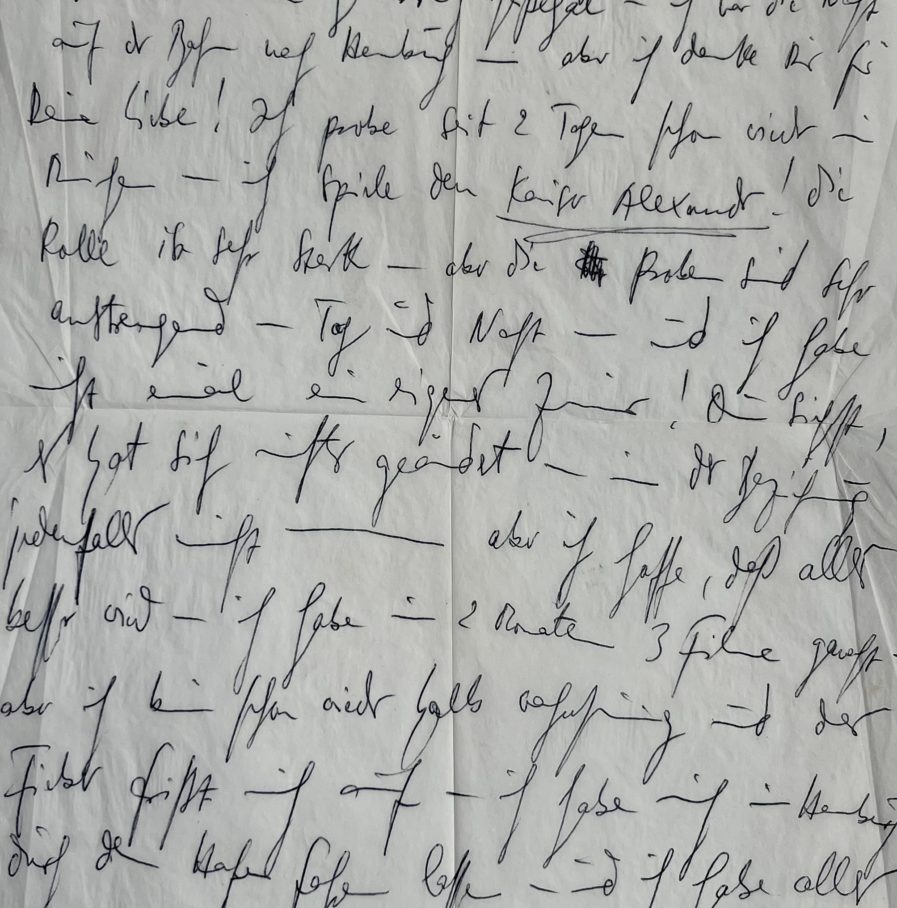 ich war die Nacht
auf der Bahn nach Hamburg — aber ich danke Dir für
Deine Liebe! Ich probe seit 2 Tagen schon wieder in
München — ich spiele den Kaiser Alexander! die
Rolle ist sehr stark — aber die Proben sind sehr
anstrengend — Tag und Nacht — und ich habe
nicht einmal ein eigenes Zimmer! Du siehst,
es hat sich nichts geändert — in der Beziehung
jedenfalls nicht — aber ich hoffe, daß alles
besser wird — ich habe in 2 Monaten 3 Filme gemacht —
aber ich bin schon wieder halb wahnsinnig und das
Fieber frißt mich auf — ich habe mich in Hamburg
durch den Hafen fahren lassen — und ich habe alles